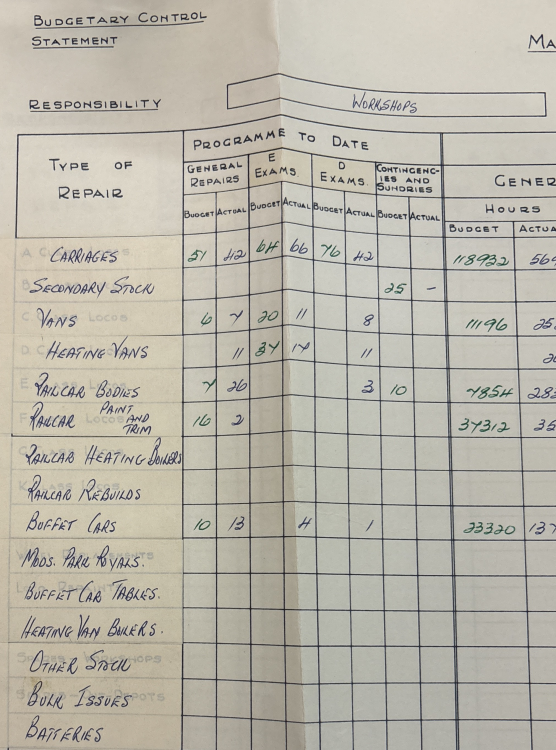 BUDGETARY CONTROL
STATEMENT
MA
RESPONSIBILITY
WORKSHOPS
TYPE OF REPAIR
PROGRAMME TO DATE
GENERAL REPAIRS E EXAMS. D EXAMS. CONTINGENC-IES AND SUNDRIES GENER
HOURS
BUDGET ACTUAL BUDGET ACTUAL BUDGET ACTUAL BUDGET ACTUAL BUDGET ACTUA
CARRIAGES 51 42 64 66 76 42 118932 564
SECONDARY STOCK 25 -
VANS 6 7 20 11 8 11196 25
HEATING VANS 11 37 17 11 20
RAILCAR BODIES 7 26 3 10 7854 283
RAILCAR PAINT AND TRIM 16 2 37312 35
RAILCAR HEATING BOILERS
RAILCAR REBUILDS
BUFFET CARS 10 13 4 1 23320 137
MODS. PARK ROYALS.
BUFFET CAR TABLES.
HEATING VAN BOILERS.
OTHER STOCK
BULK ISSUES
BATTERIES